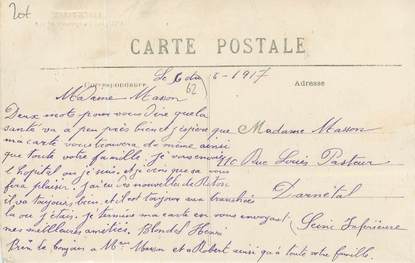 Zot
CARTE POSTALE
Correspondance
Adresse
Le 6 du 5-1917
62
Madame Masson
Deux mots pour vous dire que la
santé va à peu près bien et j'espère que
ma carte vous trouvera de même ainsi
que toute votre famille, je vous envoie
l'hopital ou je suis, et je crois que sa vous
fera plaisir. j'ai eu des nouvelles de
il va toujours bien, et il est toujours aux tranchées
la ou j'étais. je termine ma carte en vous envoyant
mes meilleures amitiés. Blondel Henri
Bien le bonjour a Mme Masson et a Robert ainsi qu'à toute votre famille.
Madame Masson
Rue Louis Pasteur
Darnétal
Seine Inférieure